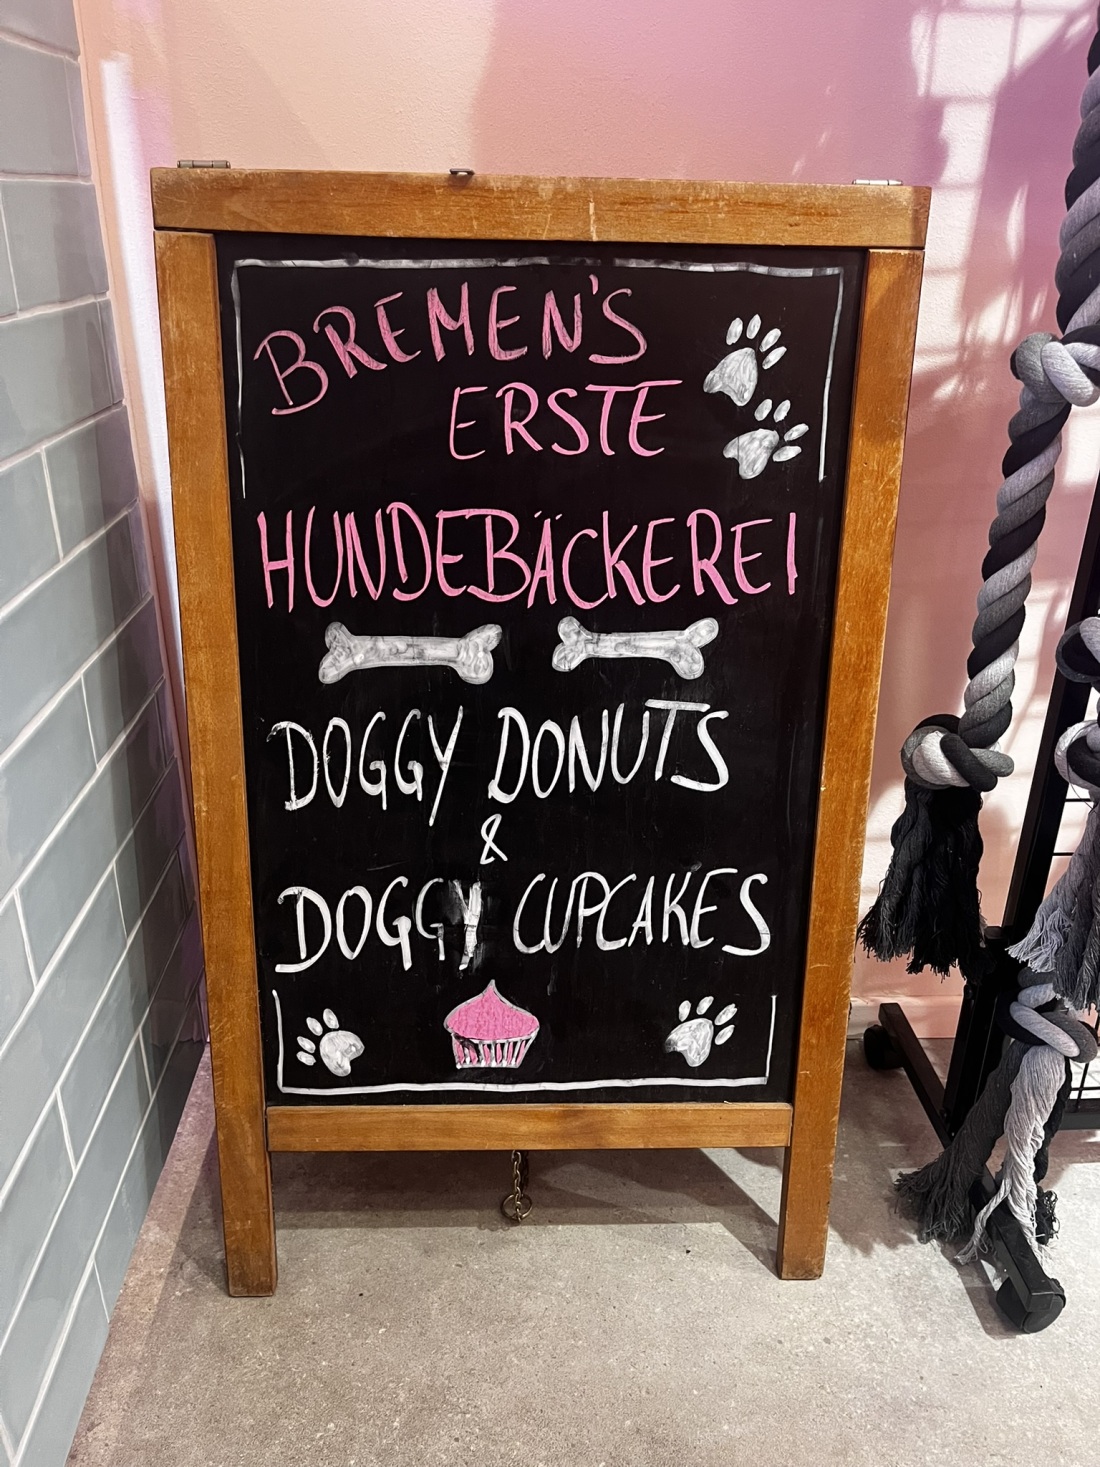 BREMEN'S
ERSTE
HUNDEBÄCKEREI
DOGGY DONUTS
&
DOGGY CUPCAKES